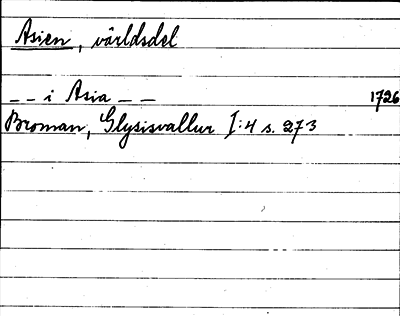 Asien, världsdel
-- i Asia -- 1726
Broman, Glysisvallur I:4 s. 273